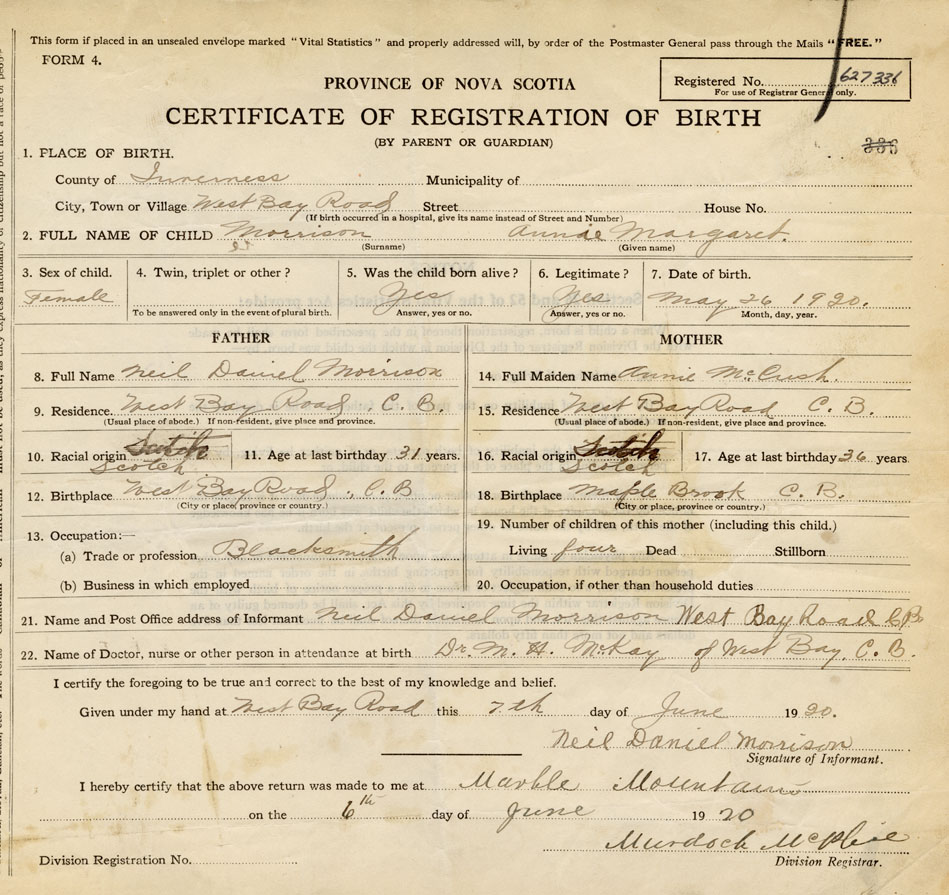 This form if placed in an unsealed envelope marked "Vital Statistics" and properly addressed will, by order of the Postmaster General pass through the Mails "FREE."
FORM 4.
Registered No. 627336
For use of Registrar General only.
PROVINCE OF NOVA SCOTIA
CERTIFICATE OF REGISTRATION OF BIRTH
(BY PARENT OR GUARDIAN)
336
1. PLACE OF BIRTH.
County of Inverness Municipality of
City, Town or Village West Bay Road Street House No.
(If birth occurred in a hospital, give its name instead of Street and Number)
2. FULL NAME OF CHILD Morrison Annie Margaret.
(Surname) (Given name)
3. Sex of child. 4. Twin, triplet or other? 5. Was the child born alive? 6. Legitimate? 7. Date of birth.
Female Yes Yes May 26 1920.
To be answered only in the event of plural birth. Answer, yes or no. Answer, yes or no. Month, day, year.
FATHER
8. Full Name Neil Daniel Morrison
9. Residence. West Bay Road, C. B.
(Usual place of abode.) If non-resident, give place and province.
10. Racial origin Scotch 11. Age at last birthday 31 years.
Scotch
12. Birthplace West Bay Road, C. B
(City or place, province or country.)
13. Occupation:—
(a) Trade or profession Blacksmith
(b) Business in which employed
MOTHER
14. Full Maiden Name Annie McCush.
15. Residence West Bay Road C. B.
(Usual place of abode.) If non-resident, give place and province.
16. Racial origin Scotch 17. Age at last birthday 36 years.
Scotch
18. Birthplace Maple Brook C. B.
(City or place, province or country.)
19. Number of children of this mother (including this child.)
Living four Dead Stillborn
20. Occupation, if other than household duties
21. Name and Post Office address of Informant Neil Daniel Morrison West Bay Road C.B.
22. Name of Doctor, nurse or other person in attendance at birth Dr. M. H. McKay of West Bay, C. B.
I certify the foregoing to be true and correct to the best of my knowledge and belief.
Given under my hand at West Bay Road this 7th day of June 1920.
Neil Daniel Morrison
Signature of Informant.
I hereby certify that the above return was made to me at Marble Mountain
on the 6th day of June 1920
Murdoch McPhie
Division Registration No. Division Registrar.